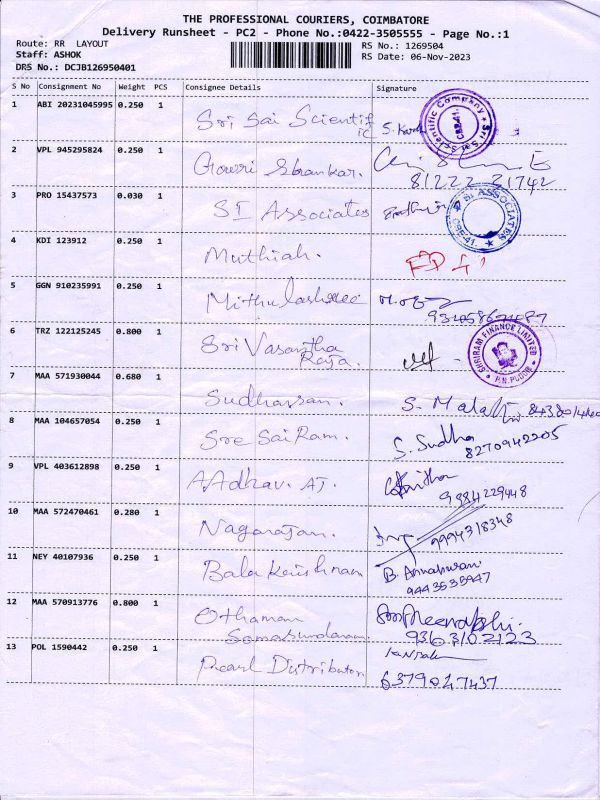 THE PROFESSIONAL COURIERS, COIMBATORE
Delivery Runsheet - PC2 - Phone No.:0422-3505555 - Page No.:1
Route: RR LAYOUT
Staff: ASHOK
DRS No.: DCJB126950401
RS No.: 1269504
RS Date: 06-Nov-2023
S No Consignment No Weight PCS Consignee Details Signature
1 ABI 20231045995 0.250 1 Sri Sai Scientific
Sri Sai Scientific Company CBE-41.
2 VPL 945295824 0.250 1 Gowri Shankar.
81222 31742
3 PRO 15437573 0.030 1 SI Associates
SI ASSOCIATES CBE-41.
4 KDI 123912 0.250 1 Muthiah.
5 GGN 910235991 0.250 1
6 TRZ 122125245 0.800 1 Sri Vasantha Raja.
SHRIRAM FINANCE LIMITED P.N. PUDUR
7 MAA 571930044 0.680 1 Sudharsan. S. Malathi
8 MAA 104657054 0.250 1 Sree Sai Ram. S. Sudha
8270942205
9 VPL 403612898 0.250 1 AAdhav. AJ.
9984229448
10 MAA 572470461 0.280 1 Nagarajan.
9994318348
11 NEY 40107936 0.250 1 Bala Krishnan B.
9443535947
12 MAA 570913776 0.800 1 Othaman Somasundaram. Meenakshi.
9363102123
13 POL 1590442 0.250 1 Pearl Distributor
6379047437